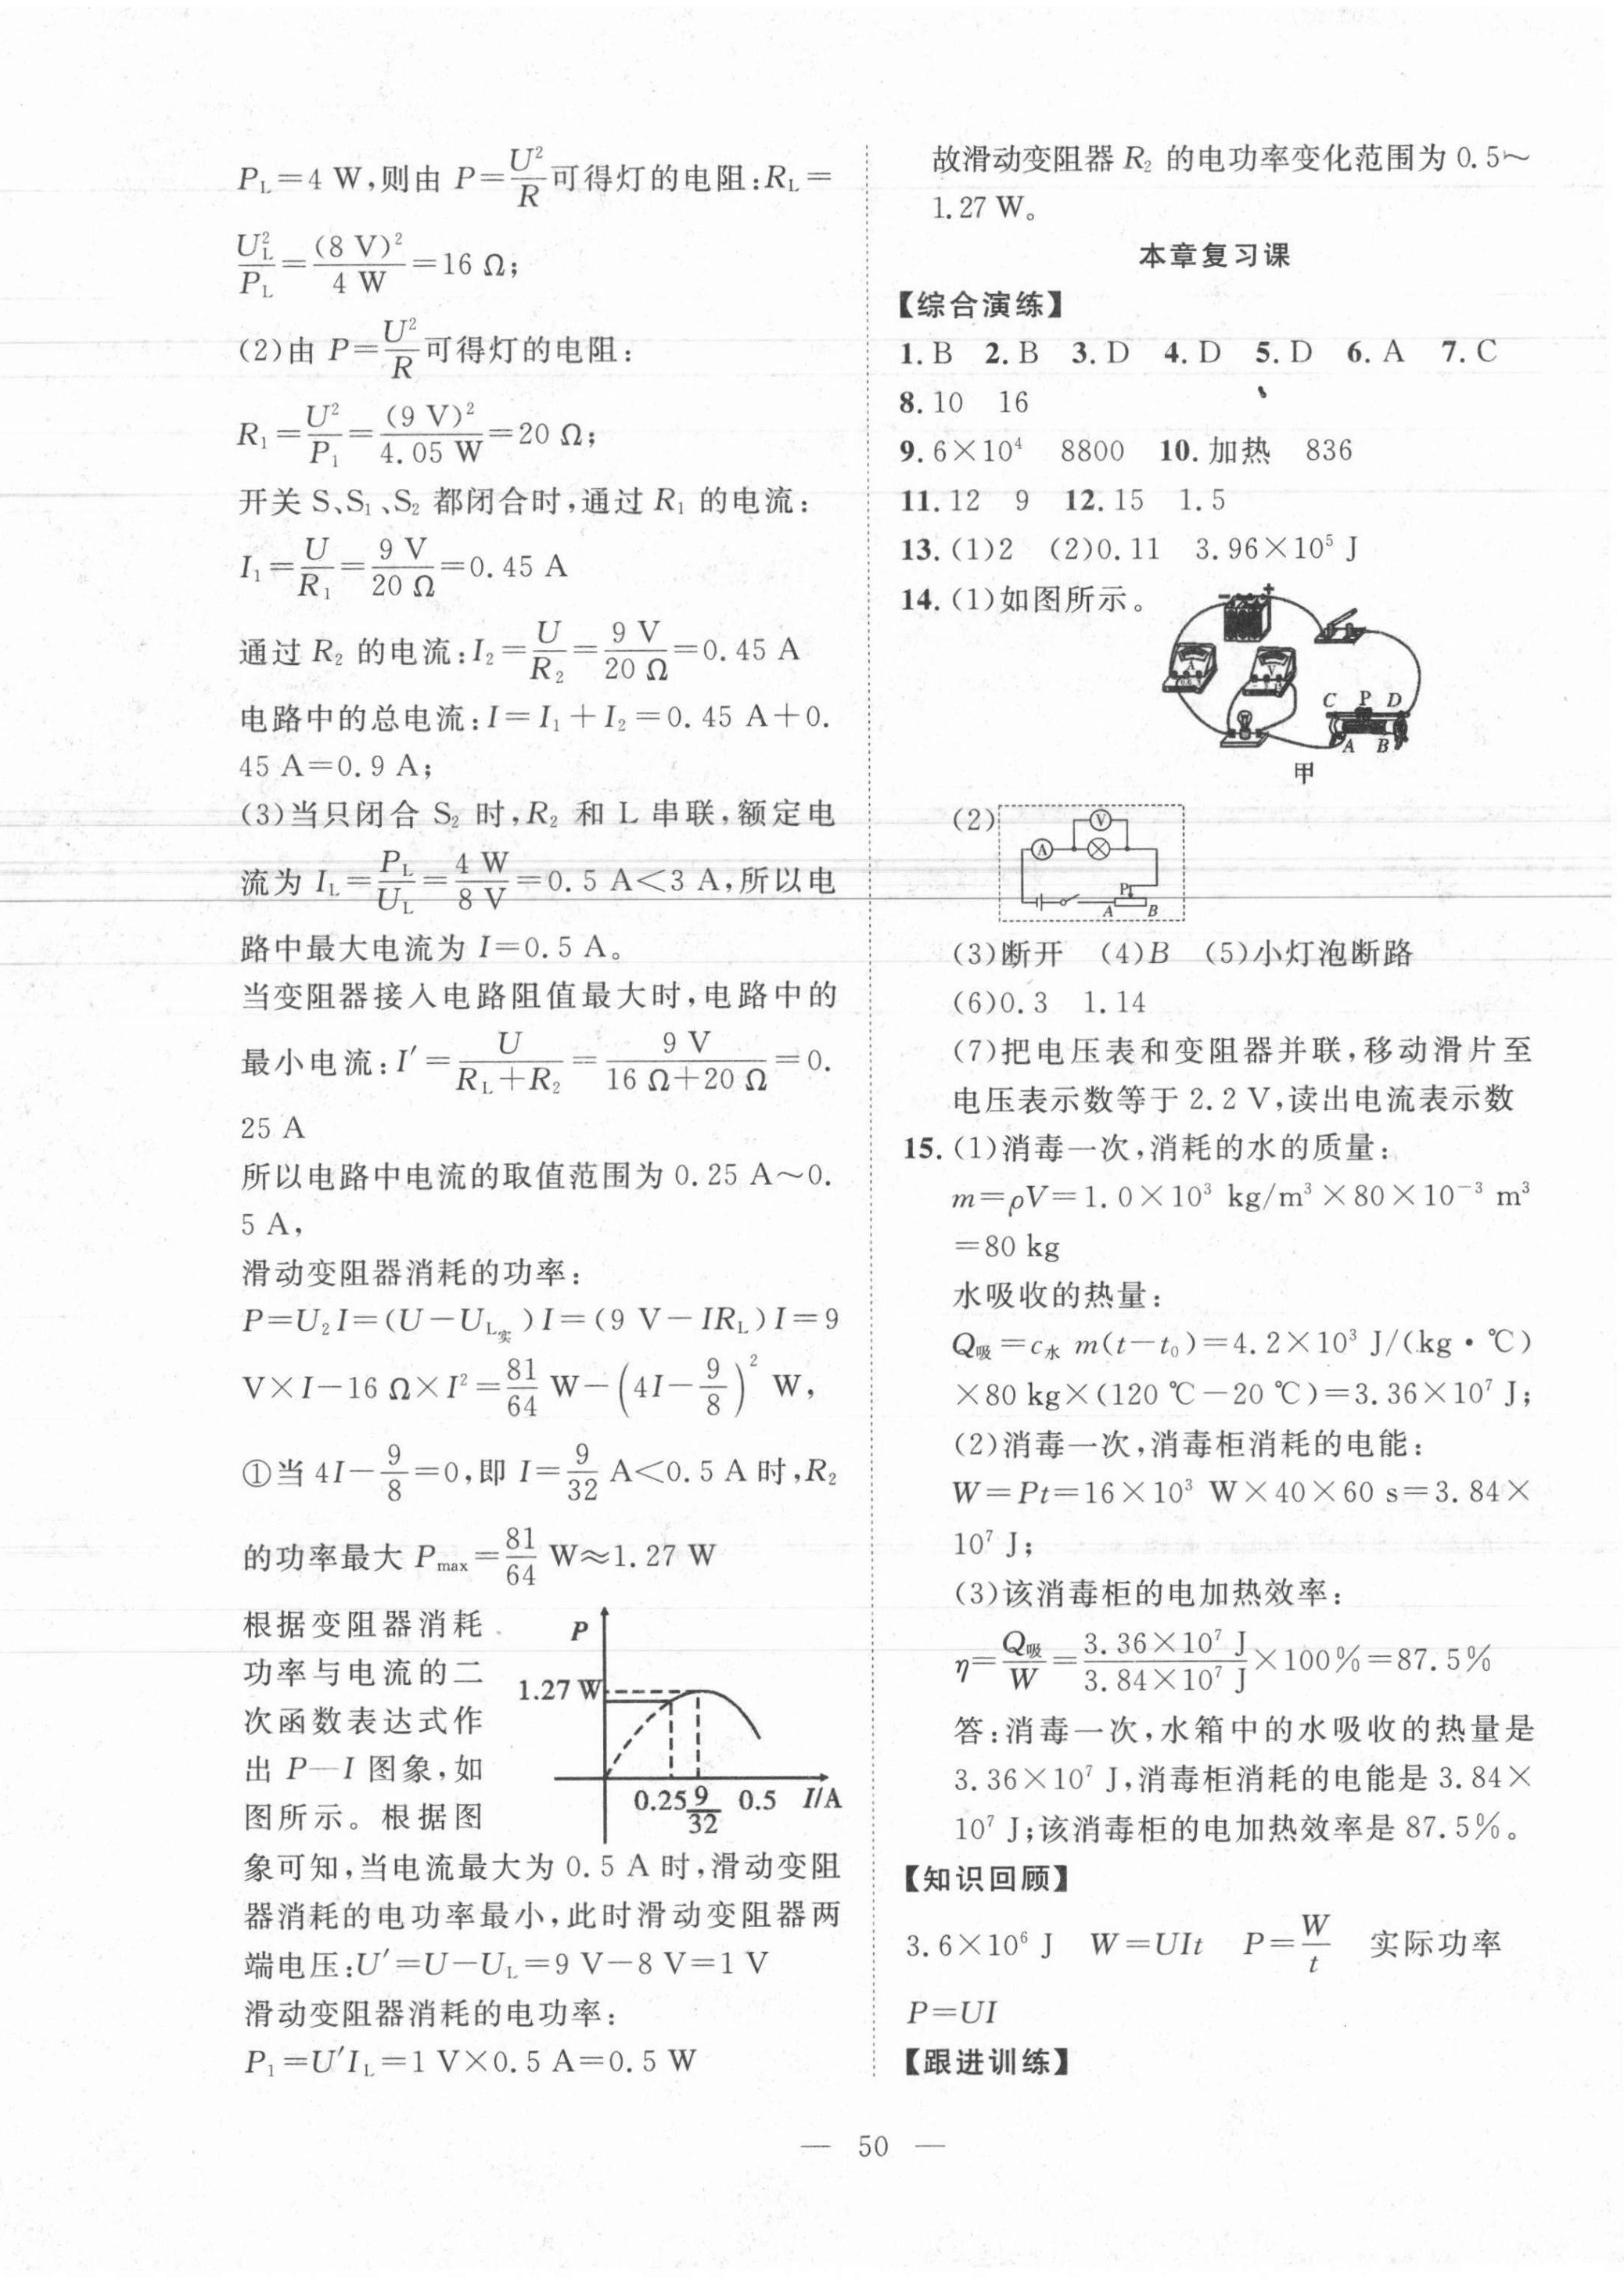 P_L=4 W,则由 P=U²/R 可得灯的电阻:R_L=
U_L²/P_L=(8 V)²/4 W=16 Ω;
(2)由 P=U²/R 可得灯的电阻:
R₁=U²/P₁=(9 V)²/4.05 W=20 Ω;
开关 S、S₁、S₂ 都闭合时,通过 R₁ 的电流:
I₁=U/R₁=9 V/20 Ω=0.45 A
通过 R₂ 的电流:I₂=U/R₂=9 V/20 Ω=0.45 A
电路中的总电流:I=I₁+I₂=0.45 A+0.
45 A=0.9 A;
(3)当只闭合 S₂ 时,R₂ 和 L 串联,额定电
流为 I_L=P_L/U_L=4 W/8 V=0.5 A<3 A,所以电
路中最大电流为 I=0.5 A。
当变阻器接入电路阻值最大时,电路中的
最小电流:I′=U/(R_L+R₂)=9 V/(16 Ω+20 Ω)=0.
25 A
所以电路中电流的取值范围为 0.25 A~0.
5 A,
滑动变阻器消耗的功率:
P=U₂I=(U-U_L实)I=(9 V-IR_L)I=9
V×I-16 Ω×I²=81/64 W-(4I-9/8)² W,
①当 4I-9/8=0,即 I=9/32 A<0.5 A 时,R₂
的功率最大 P_max=81/64 W≈1.27 W
根据变阻器消耗
功率与电流的二
次函数表达式作
出 P—I 图象,如
图所示。根据图
P
1.27 W
0.25 9/32 0.5 I/A
象可知,当电流最大为 0.5 A 时,滑动变阻
器消耗的电功率最小,此时滑动变阻器两
端电压:U′=U-U_L=9 V-8 V=1 V
滑动变阻器消耗的电功率:
P₁=U′I_L=1 V×0.5 A=0.5 W
故滑动变阻器 R₂ 的电功率变化范围为 0.5~
1.27 W。
本章复习课
【综合演练】
1.B 2.B 3.D 4.D 5.D 6.A 7.C
8.10 16
9.6×10⁴ 8800 10.加热 836
11.12 9 12.15 1.5
13.(1)2 (2)0.11 3.96×10⁵ J
14.(1)如图所示。
- +
A V
C P D
A B
甲
(2)
V
A
P
A B
(3)断开 (4)B (5)小灯泡断路
(6)0.3 1.14
(7)把电压表和变阻器并联,移动滑片至
电压表示数等于 2.2 V,读出电流表示数
15.(1)消毒一次,消耗的水的质量:
m=ρV=1.0×10³ kg/m³×80×10⁻³ m³
=80 kg
水吸收的热量:
Q吸=c水 m(t-t₀)=4.2×10³ J/(kg·℃)
×80 kg×(120 ℃-20 ℃)=3.36×10⁷ J;
(2)消毒一次,消毒柜消耗的电能:
W=Pt=16×10³ W×40×60 s=3.84×
10⁷ J;
(3)该消毒柜的电加热效率:
η=Q吸/W=3.36×10⁷ J/3.84×10⁷ J×100%=87.5%
答:消毒一次,水箱中的水吸收的热量是
3.36×10⁷ J,消毒柜消耗的电能是 3.84×
10⁷ J;该消毒柜的电加热效率是 87.5%。
【知识回顾】
3.6×10⁶ J W=UIt P=W/t 实际功率
P=UI
【跟进训练】
— 50 —